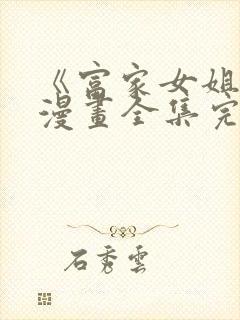 《富家女姐
漫畫全集完
石秀雲